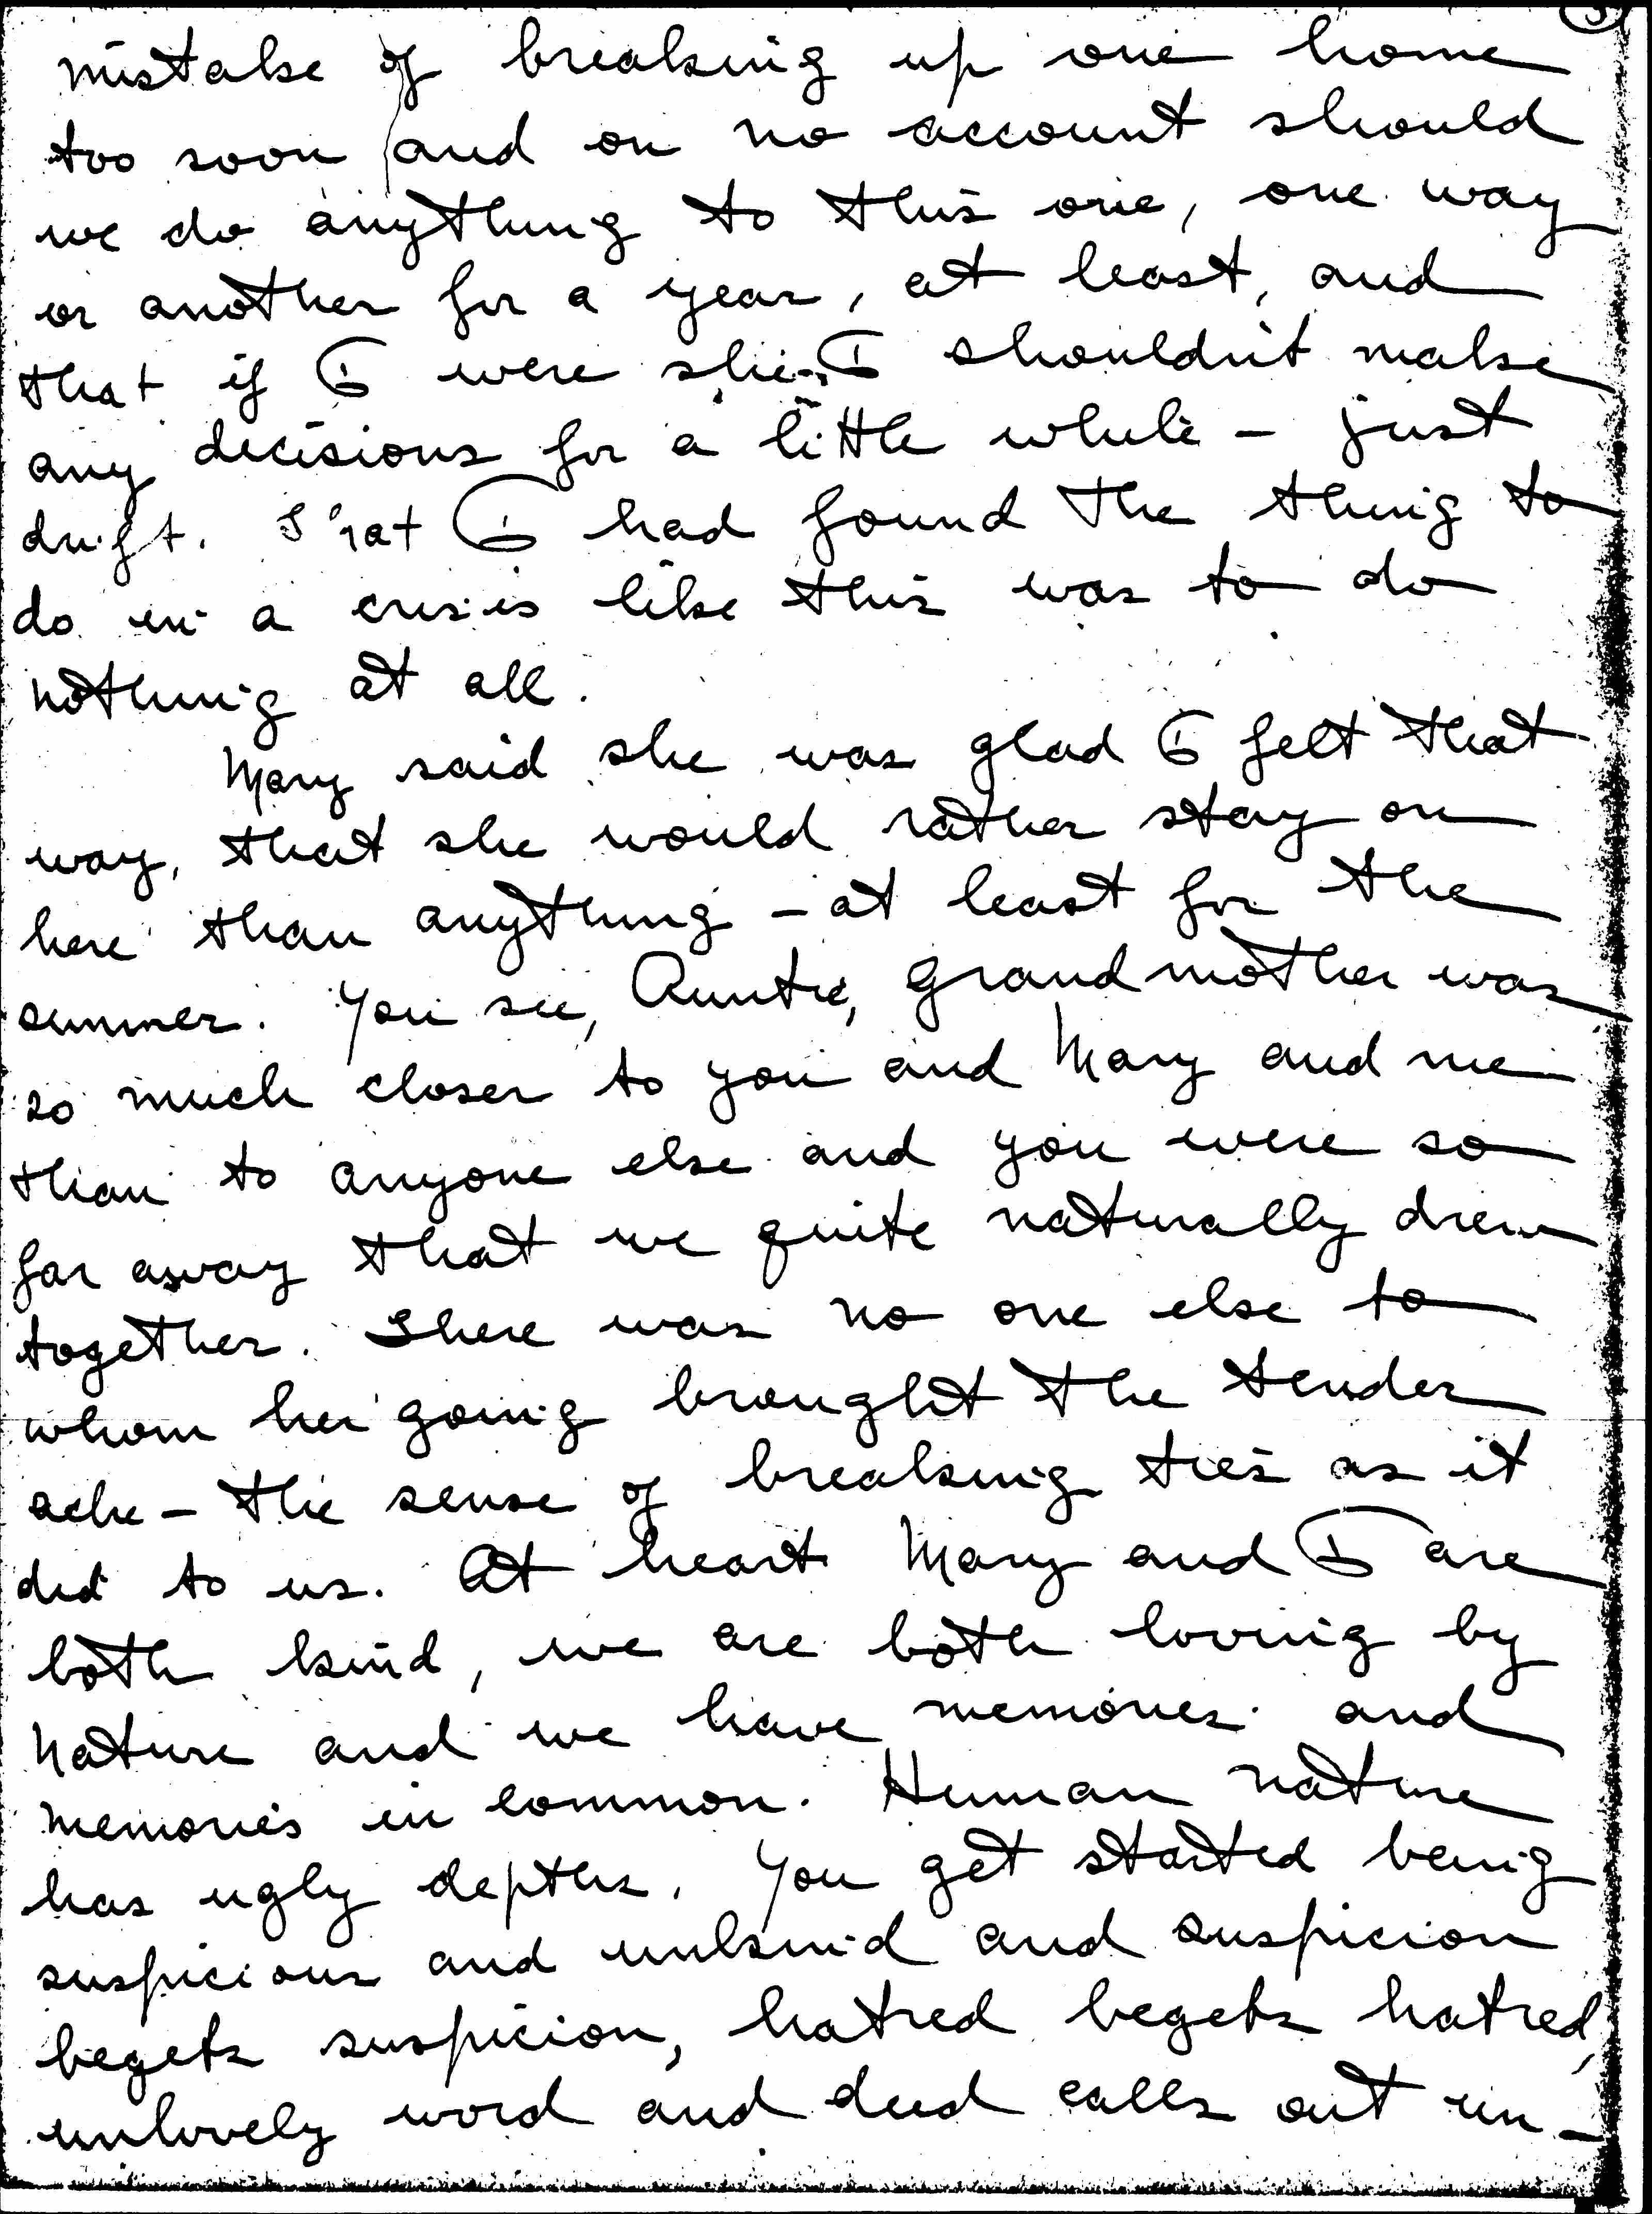 mistake of breaking up one home
too soon and on no account should
we do anything to this one, one way
or another for a year, at least, and
that if I were she I shouldn't make
any decisions for a little while – just
drift. That I had found the thing to
do in a crisis like this was to do
nothing at all.
Mary said she was glad I felt that
way, that she would rather stay on
here than anything – at least for the
summer. You see, Auntie, grandmother was
so much closer to you and Mary and me
than to anyone else and you were so
far away that we quite naturally drew
together. There was no one else to
whom her going brought the tender
ache – the sense of breaking ties as it
did to us. At heart Mary and I are
both kind, we are both loving by
nature and we have memories and
memories in common. Human nature
has ugly depths. You get started being
suspicious and unkind and suspicion
begets suspicion, hatred begets hatred,
unlovely word and deed calls out un-